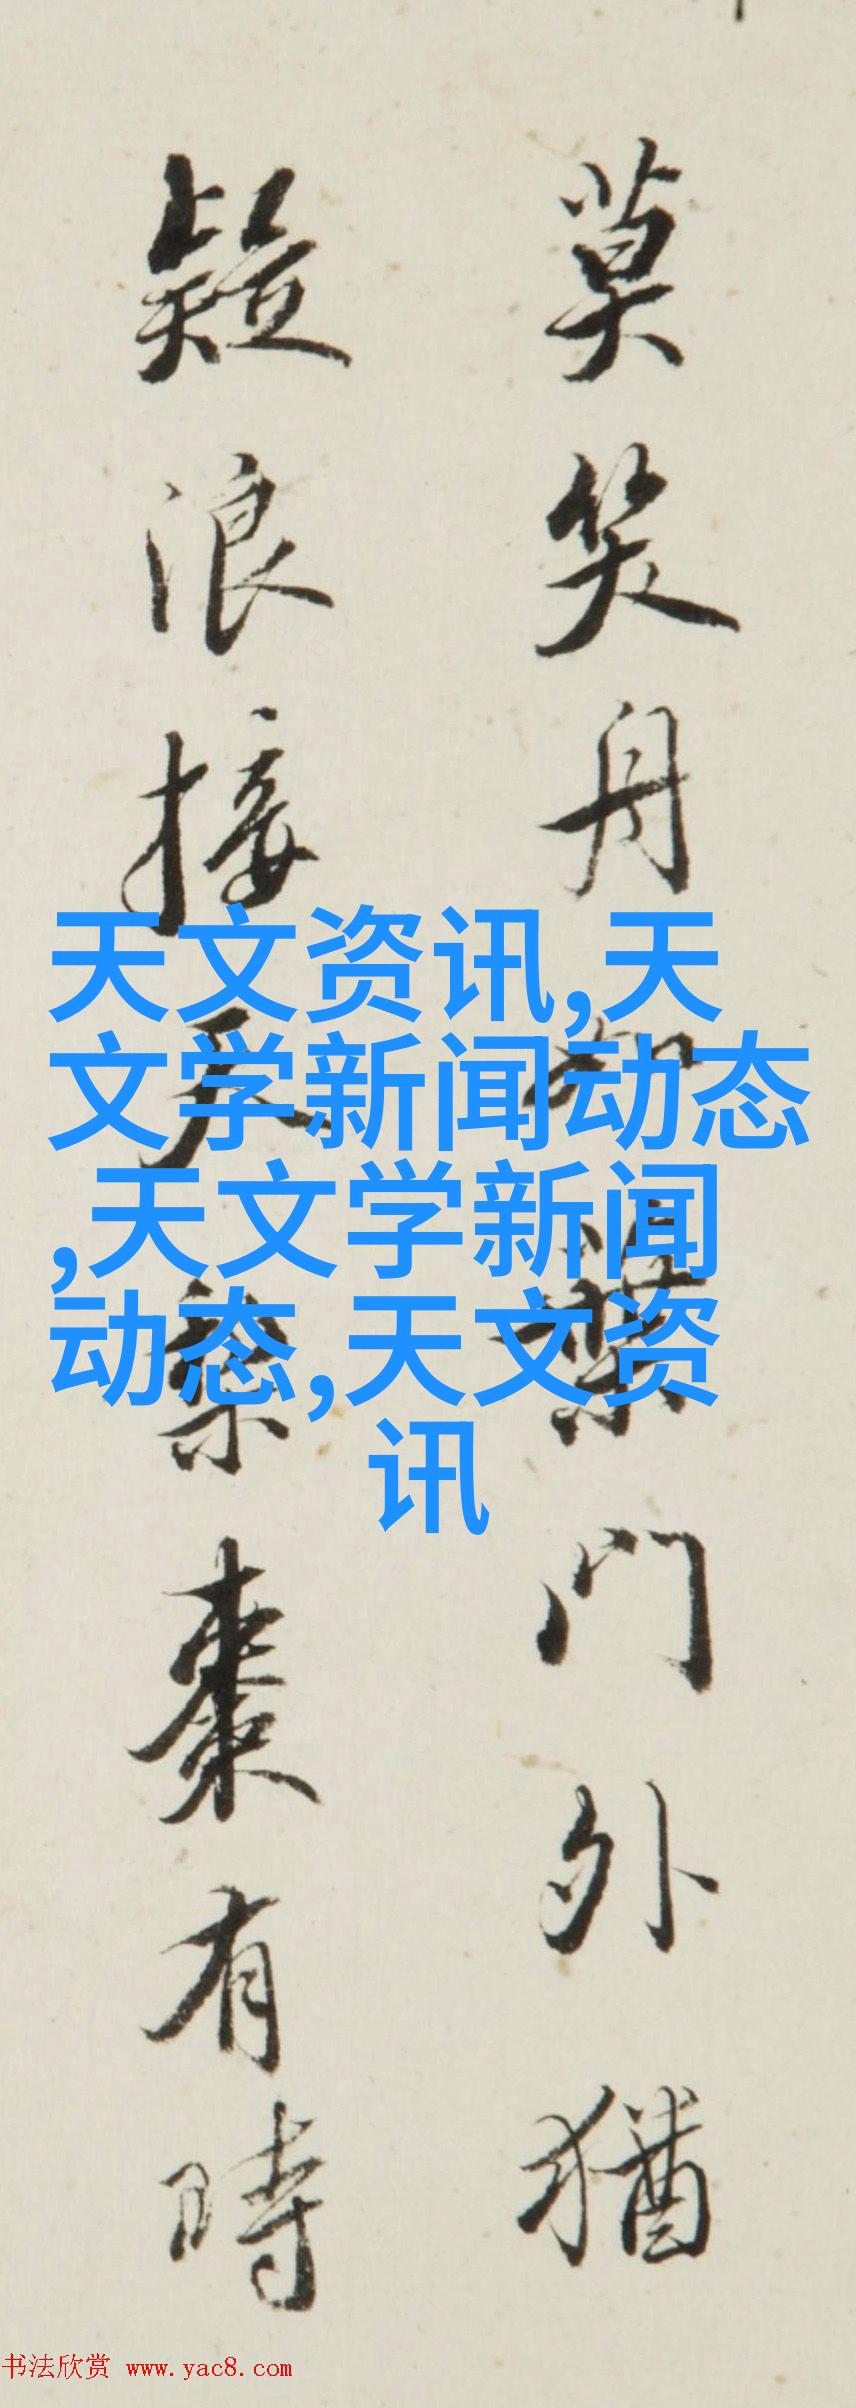 莫笑舟如葉門外猶
疑浪接天黎棗有時
天文资讯,天
文学新闻动态
,天文学新闻
动态,天文资
讯
书法欣赏 www.yac8.com